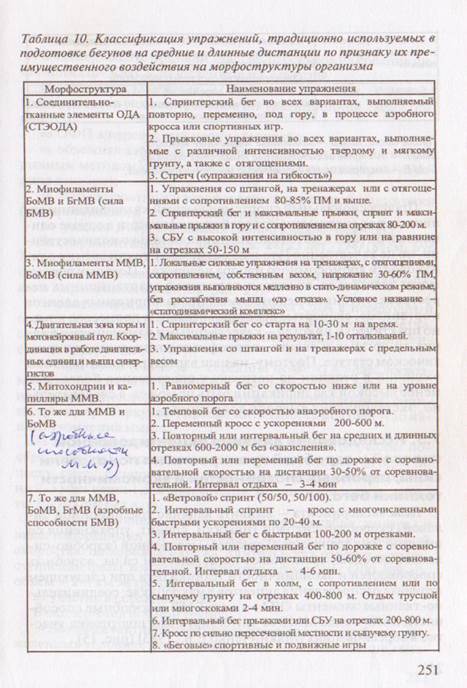 Таблица 10. Классификация упражнений, традиционно используемых в
подготовке бегунов на средние и длинные дистанции по признаку их пре-
имущественного воздействия на морфоструктуры организма
Морфоструктура
Наименование упражнения
1. Соединительно-
тканные элементы ОДА
(СТЭОДА)
1. Спринтерский бег во всех вариантах, выполняемый
повторно, переменно, под гору, в процессе аэробного
кросса или спортивных игр.
2. Прыжковые упражнения во всех вариантах, выполняе-
мые с различной интенсивностью твердому и мягкому
грунту, а также с отягощениями.
3. Стретч («упражнения на гибкость»)
2. Миофиламенты
БоМВ и БгМВ (сила
БМВ)
1. Упражнения со штангой, на тренажерах или с отягоще-
ниями с сопротивлением 80-85% ПМ и выше.
2. Спринтерский бег и максимальные прыжки, спринт и макси-
мальные прыжки в гору и с сопротивлением на отрезках 80-200 м.
3. СБУ с высокой интенсивностью в гору или на равнине
на отрезках 50-150 м
3. Миофиламенты ММВ,
БоМВ (сила ММВ)
1. Локальные силовые упражнения на тренажерах, с отягощениями,
сопротивлением, собственным весом, напряжение 30-60% ПМ,
упражнения выполняются медленно в стато-динамическом режиме,
без расслабления мышц «до отказа». Условное название –
«статодинамический комплекс»
4. Двигательная зона коры и
мотонейронный пул. Коор-
динация в работе двигатель-
ных единиц и мышц синер-
гистов
1. Спринтерский бег со старта на 10-30 м на время.
2. Максимальные прыжки на результат, 1-10 отталкиваний.
3. Упражнения со штангой и на тренажерах с предельным
весом
5. Митохондрии и ка-
пилляры ММВ.
1. Равномерный бег со скоростью ниже или на уровне
аэробного порога
6. То же для ММВ и
БоМВ
(аэробные
способности
ММВ)
1. Темповой бег со скоростью анаэробного порога.
2. Переменный кросс с ускорениями 200-600 м.
3. Повторный или интервальный бег на средних и длинных
отрезках 600-2000 м без «закисления».
4. Повторный или переменный бег по дорожке с соревно-
вательной скоростью на дистанции 30-50% от соревнова-
тельной. Интервал отдыха – 3-4 мин
7. То же для ММВ,
БоМВ, БгМВ (аэробные
способности БМВ)
1. «Ветровой» спринт (50/50, 50/100).
2. Интервальный спринт – кросс с многочисленными
быстрыми ускорениями по 20-40 м.
3. Интервальный бег с быстрыми 100-200 м отрезками.
4. Повторный или переменный бег по дорожке с соревно-
вательной скоростью на дистанции 50-60% от соревнова-
тельной. Интервал отдыха – 4-6 мин.
5. Интервальный бег в холм, с сопротивлением или по
сыпучему грунту на отрезках 400-800 м. Отдых трусцой
или многоскоками 2-4 мин.
6. Интервальный бег прыжками или СБУ на отрезках 200-800 м.
7. Кросс по сильно пересеченной местности и сыпучему грунту.
8. «Беговые» спортивные и подвижные игры
251